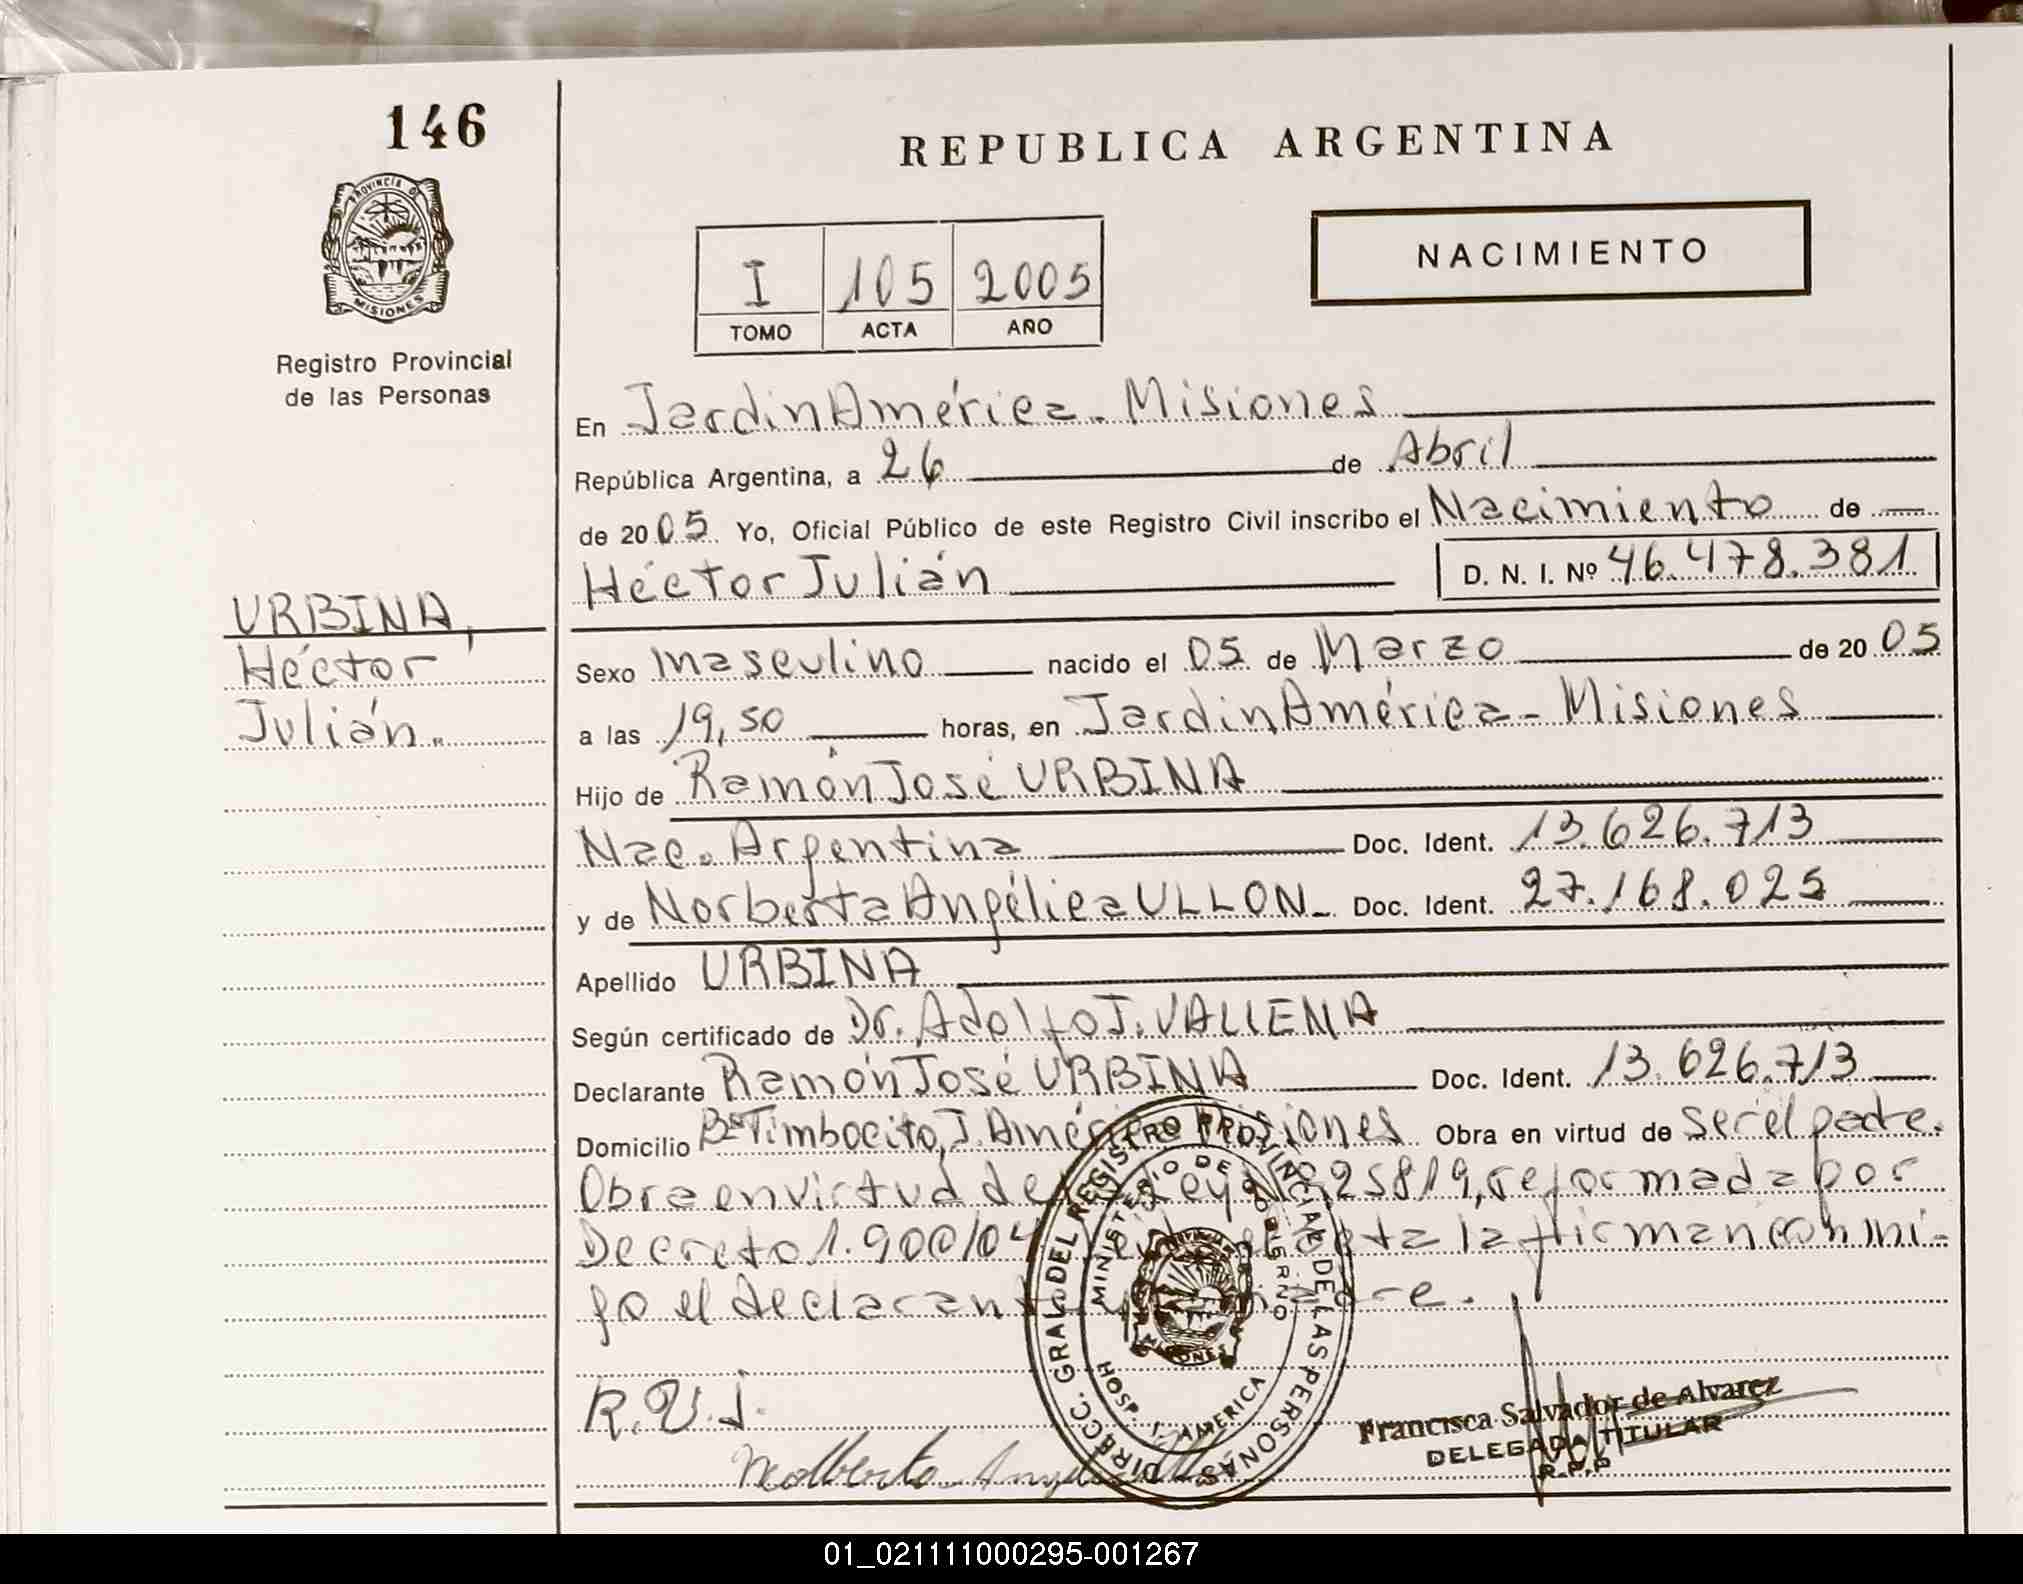 146
REPUBLICA ARGENTINA
PROVINCIA DE
MISIONES
Registro Provincial
de las Personas
NACIMIENTO
I 105 2005
TOMO ACTA AÑO
En Jardin América - Misiones
República Argentina, a 26 de Abril
de 2005 Yo, Oficial Público de este Registro Civil inscribo el Nacimiento de
Héctor Julián D. N. I. Nº 46.478.381
URBINA,
Héctor
Julián.
Sexo masculino nacido el 05 de Marzo de 2005
a las 19,50 horas, en Jardin América - Misiones
Hijo de Ramón José URBINA
Nac. Argentina Doc. Ident. 13.626.713
y de Norberta Angélica ULLON - Doc. Ident. 27.168.025
Apellido URBINA
Según certificado de Dr. Adolfo J. VALLENA
Declarante Ramón José URBINA Doc. Ident. 13.626.713
Domicilio Bº Timbocito, J. América Misiones Obra en virtud de ser el padre.
Obra en virtud de Ley Nº 25819, reformada por
Decreto 1.900/04 la firman con mi-
go el declarante
R.U.J.
DIRECC. GRAL. DEL REGISTRO PROVINCIAL DE LAS PERSONAS
MINISTERIO DE GOBIERNO
MISIONES
HOSP. J. AMERICA
Francisca Salvador de Alvarez
DELEGADA TITULAR
R.P.P
01_021111000295-001267